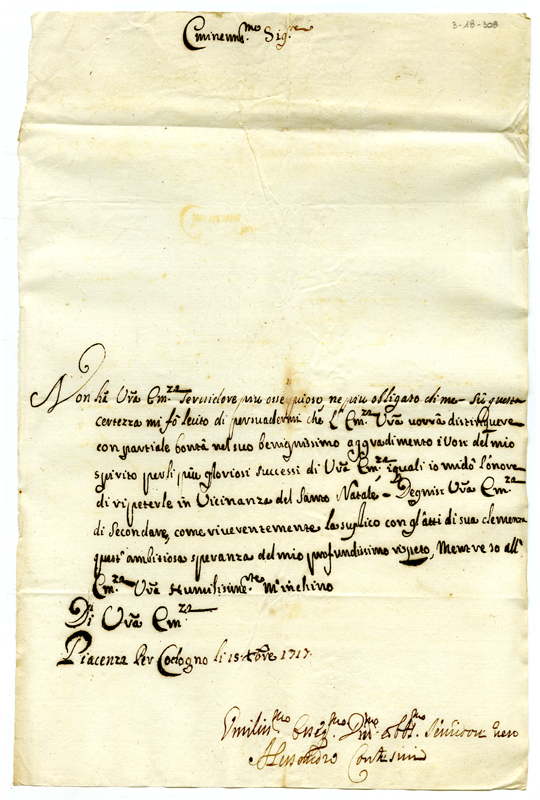 3-18-308
Eminenmo. Sigre.
Non hà Vrã Emza. Servidore piu ossequioso, ne piu obligato di me. Sù questa
certezza mi fò lecito di persuadermi che l'Emza. Vrã vorrà distinguere
con partiale bontà nel suo benignissimo aggradimento i Voti del mio
spirito per li più gloriosi successi di Vrã Emza., quali io mi dò l'onore
di ripeterle in Vicinanza del Santo Natale. Degnisi Vrã Emza.
di Secondare, come riverentemente la suplico con gl'atti di sua clemenza
quest'ambitiosa speranza del mio profundissimo rispeto, Mentre io all'
Emza. Vrã Humilissimte. m'inchino
Di Vrã Emza.
Piacenza Per Codogno li 15 Xbre 1717.
Umilissmo Dmo. Obbmo. Servidore vero
Alessandro